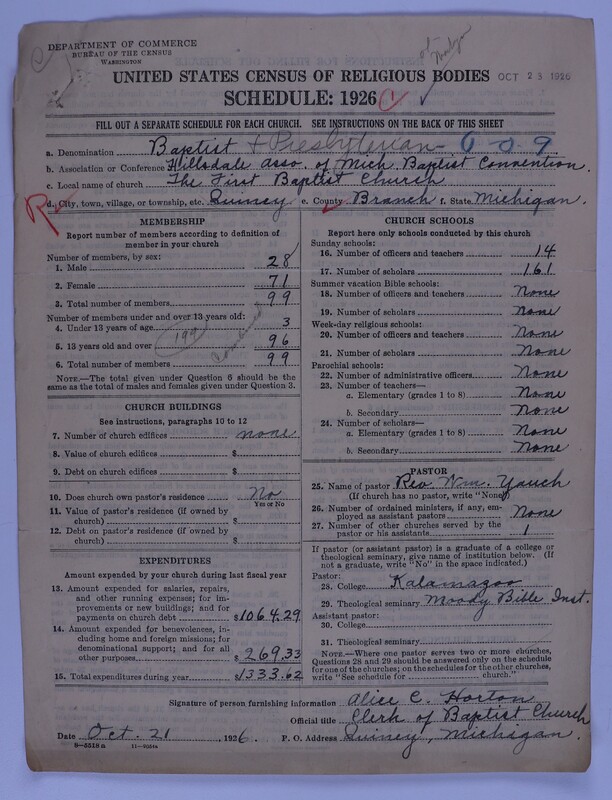 DEPARTMENT OF COMMERCE
BUREAU OF THE CENSUS
WASHINGTON
UNITED STATES CENSUS OF RELIGIOUS BODIES
OCT 23 1926
SCHEDULE: 1926
FILL OUT A SEPARATE SCHEDULE FOR EACH CHURCH. SEE INSTRUCTIONS ON THE BACK OF THIS SHEET
a. Denomination Baptist + Presbyterian 609
b. Association or Conference Hillsdale Asso. of Mich. Baptist Convention
c. Local name of church The First Baptist Church
d. City, town, village, or township, etc. Quincy e. County Branch f. State Michigan.
MEMBERSHIP
Report number of members according to definition of member in your church
Number of members, by sex:
1. Male 28
2. Female 71
3. Total number of members 99
Number of members under and over 13 years old:
4. Under 13 years of age 3
194
5. 13 years old and over 96
6. Total number of members 99
NOTE.—The total given under Question 6 should be the same as the total of males and females given under Question 3.
CHURCH BUILDINGS
See instructions, paragraphs 10 to 12
7. Number of church edifices none
8. Value of church edifices $
9. Debt on church edifices $
10. Does church own pastor's residence No
Yes or No
11. Value of pastor's residence (if owned by church) $
12. Debt on pastor's residence (if owned by church) $
EXPENDITURES
Amount expended by your church during last fiscal year
13. Amount expended for salaries, repairs, and other running expenses; for improvements or new buildings; and for payments on church debt $1064.29
14. Amount expended for benevolences, including home and foreign missions; for denominational support; and for all other purposes $269.33
15. Total expenditures during year $1333.62
CHURCH SCHOOLS
Report here only schools conducted by this church
Sunday schools:
16. Number of officers and teachers 14
17. Number of scholars 161
Summer vacation Bible schools:
18. Number of officers and teachers None
19. Number of scholars None
Week-day religious schools:
20. Number of officers and teachers None
21. Number of scholars None
Parochial schools:
22. Number of administrative officers None
23. Number of teachers—
a. Elementary (grades 1 to 8) None
b. Secondary None
24. Number of scholars—
a. Elementary (grades 1 to 8) None
b. Secondary None
PASTOR
25. Name of pastor Rev Wm. Yauch
(If church has no pastor, write "None")
26. Number of ordained ministers, if any, employed as assistant pastors None
27. Number of other churches served by the pastor or his assistants 1
If pastor (or assistant pastor) is a graduate of a college or theological seminary, give name of institution below. (If not a graduate, write "No" in the space indicated.)
Pastor:
28. College Kalamazoo
29. Theological seminary Moody Bible Inst.
Assistant pastor:
30. College
31. Theological seminary
NOTE.—Where one pastor serves two or more churches, Questions 28 and 29 should be answered only on the schedule for one of the churches; on the schedules for the other churches, write "See schedule for church."
Signature of person furnishing information Alice C. Horton
Official title Clerk of Baptist Church
Date Oct. 21, 1926. P. O. Address Quincy, Michigan.